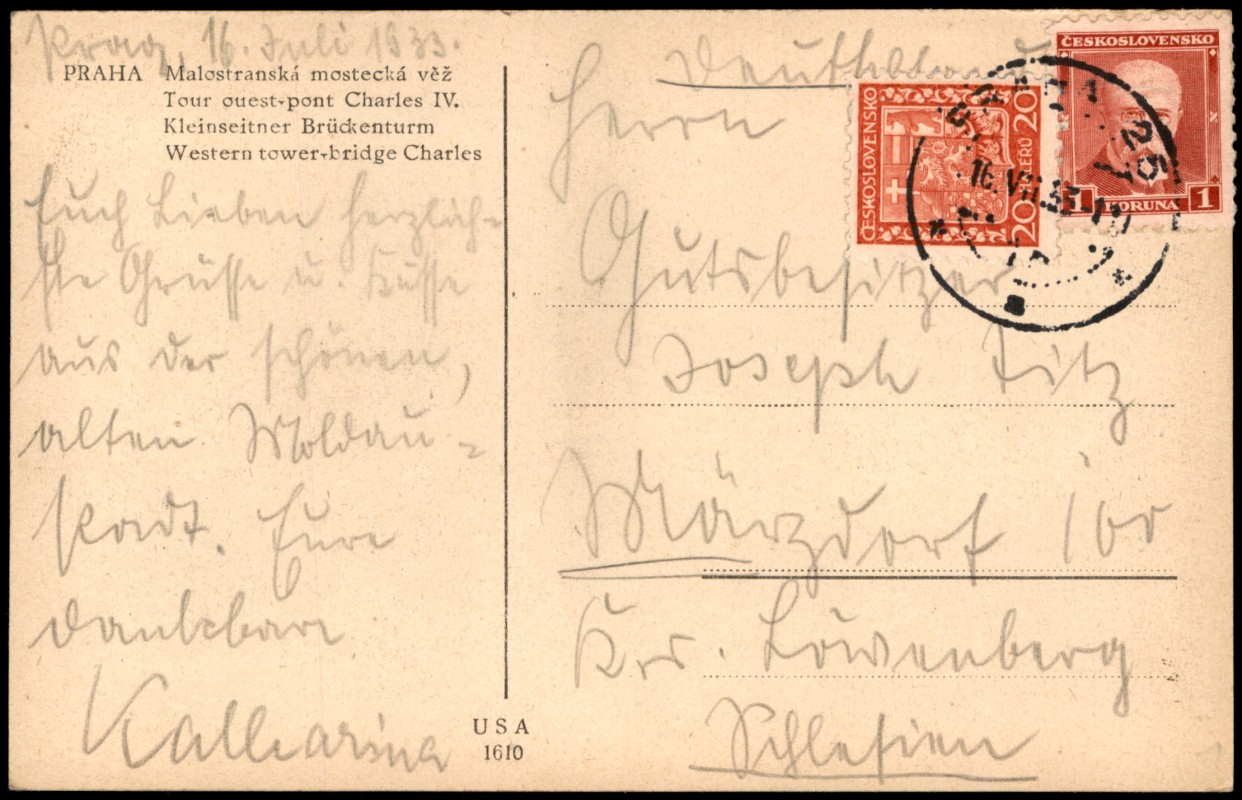 Prag, 16. Juli 1933.
PRAHA Malostranská mostecká věž
Tour ouest-pont Charles IV.
Kleinseitner Brückenturm
Western tower-bridge Charles
Euch Lieben herzlich-
ste Grüsse u. Küsse
aus der schönen,
alten Moldau-
stadt. Eure
dankbare
Katharina
USA
1610
Deutschland
Herrn
Gutsbesitzer
Joseph Fitz
Märzdorf 160
Krs. Löwenberg
Schlesien
ČESKOSLOVENSKO
20 HALÉŘŮ 20
ČESKOSLOVENSKO
1 KORUNA 1
PRAHA 25
16.VII.33